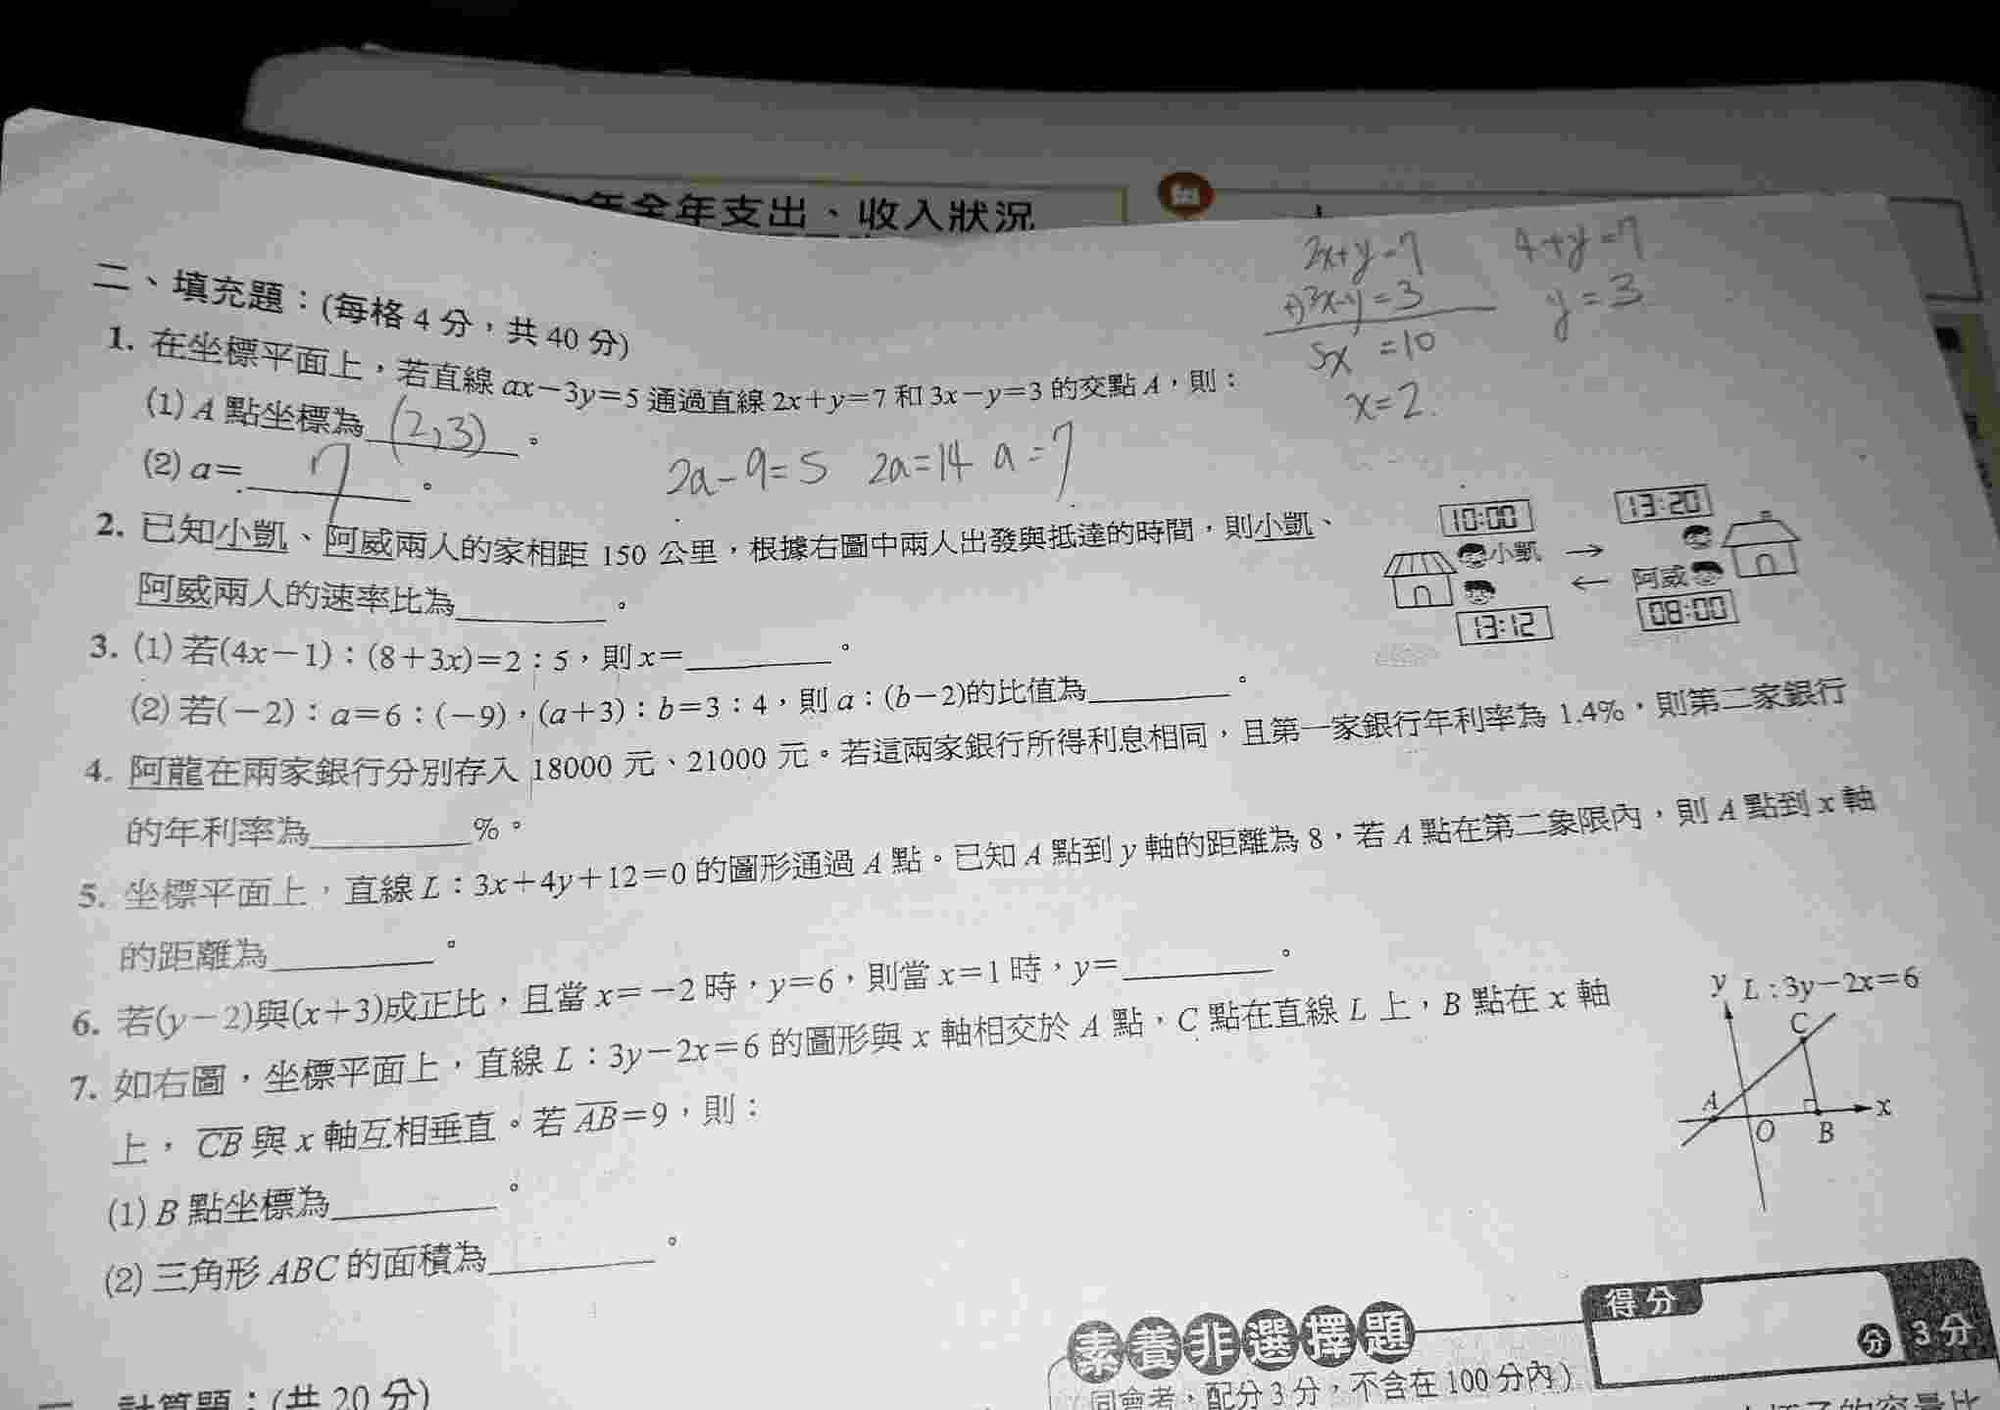 年全年支出、收入狀況
2x+y=7
+)3x-y=3
5x =10
x=2.
4+y=7
y=3
二、填充題：(每格 4 分，共 40 分)
1. 在坐標平面上，若直線 ax－3y=5 通過直線 2x+y=7 和 3x－y=3 的交點 A，則：
(1) A 點坐標為 (2,3) 。
(2) a= 7 。
2a-9=5 2a=14 a=7
2. 已知小凱、阿威兩人的家相距 150 公里，根據右圖中兩人出發與抵達的時間，則小凱、
阿威兩人的速率比為________。
10:00
13:20
小凱
阿威
13:12
08:00
3. (1) 若(4x－1)：(8+3x)=2：5，則 x=________。
(2) 若(－2)：a=6：(－9)，(a+3)：b=3：4，則 a：(b－2)的比值為________。
4. 阿龍在兩家銀行分別存入 18000 元、21000 元。若這兩家銀行所得利息相同，且第一家銀行年利率為 1.4%，則第二家銀行
的年利率為________%。
5. 坐標平面上，直線 L：3x+4y+12=0 的圖形通過 A 點。已知 A 點到 y 軸的距離為 8，若 A 點在第二象限內，則 A 點到 x 軸
的距離為________。
6. 若(y－2)與(x+3)成正比，且當 x=－2 時，y=6，則當 x=1 時，y=________。
7. 如右圖，坐標平面上，直線 L：3y－2x=6 的圖形與 x 軸相交於 A 點，C 點在直線 L 上，B 點在 x 軸
上，CB 與 x 軸互相垂直。若 AB=9，則：
(1) B 點坐標為________。
(2) 三角形 ABC 的面積為________。
y L：3y－2x=6
C
A
x
O B
素養非選擇題
得分
分 3分
(同會考，配分 3 分，不含在 100 分內)
計算題：(共 20 分)